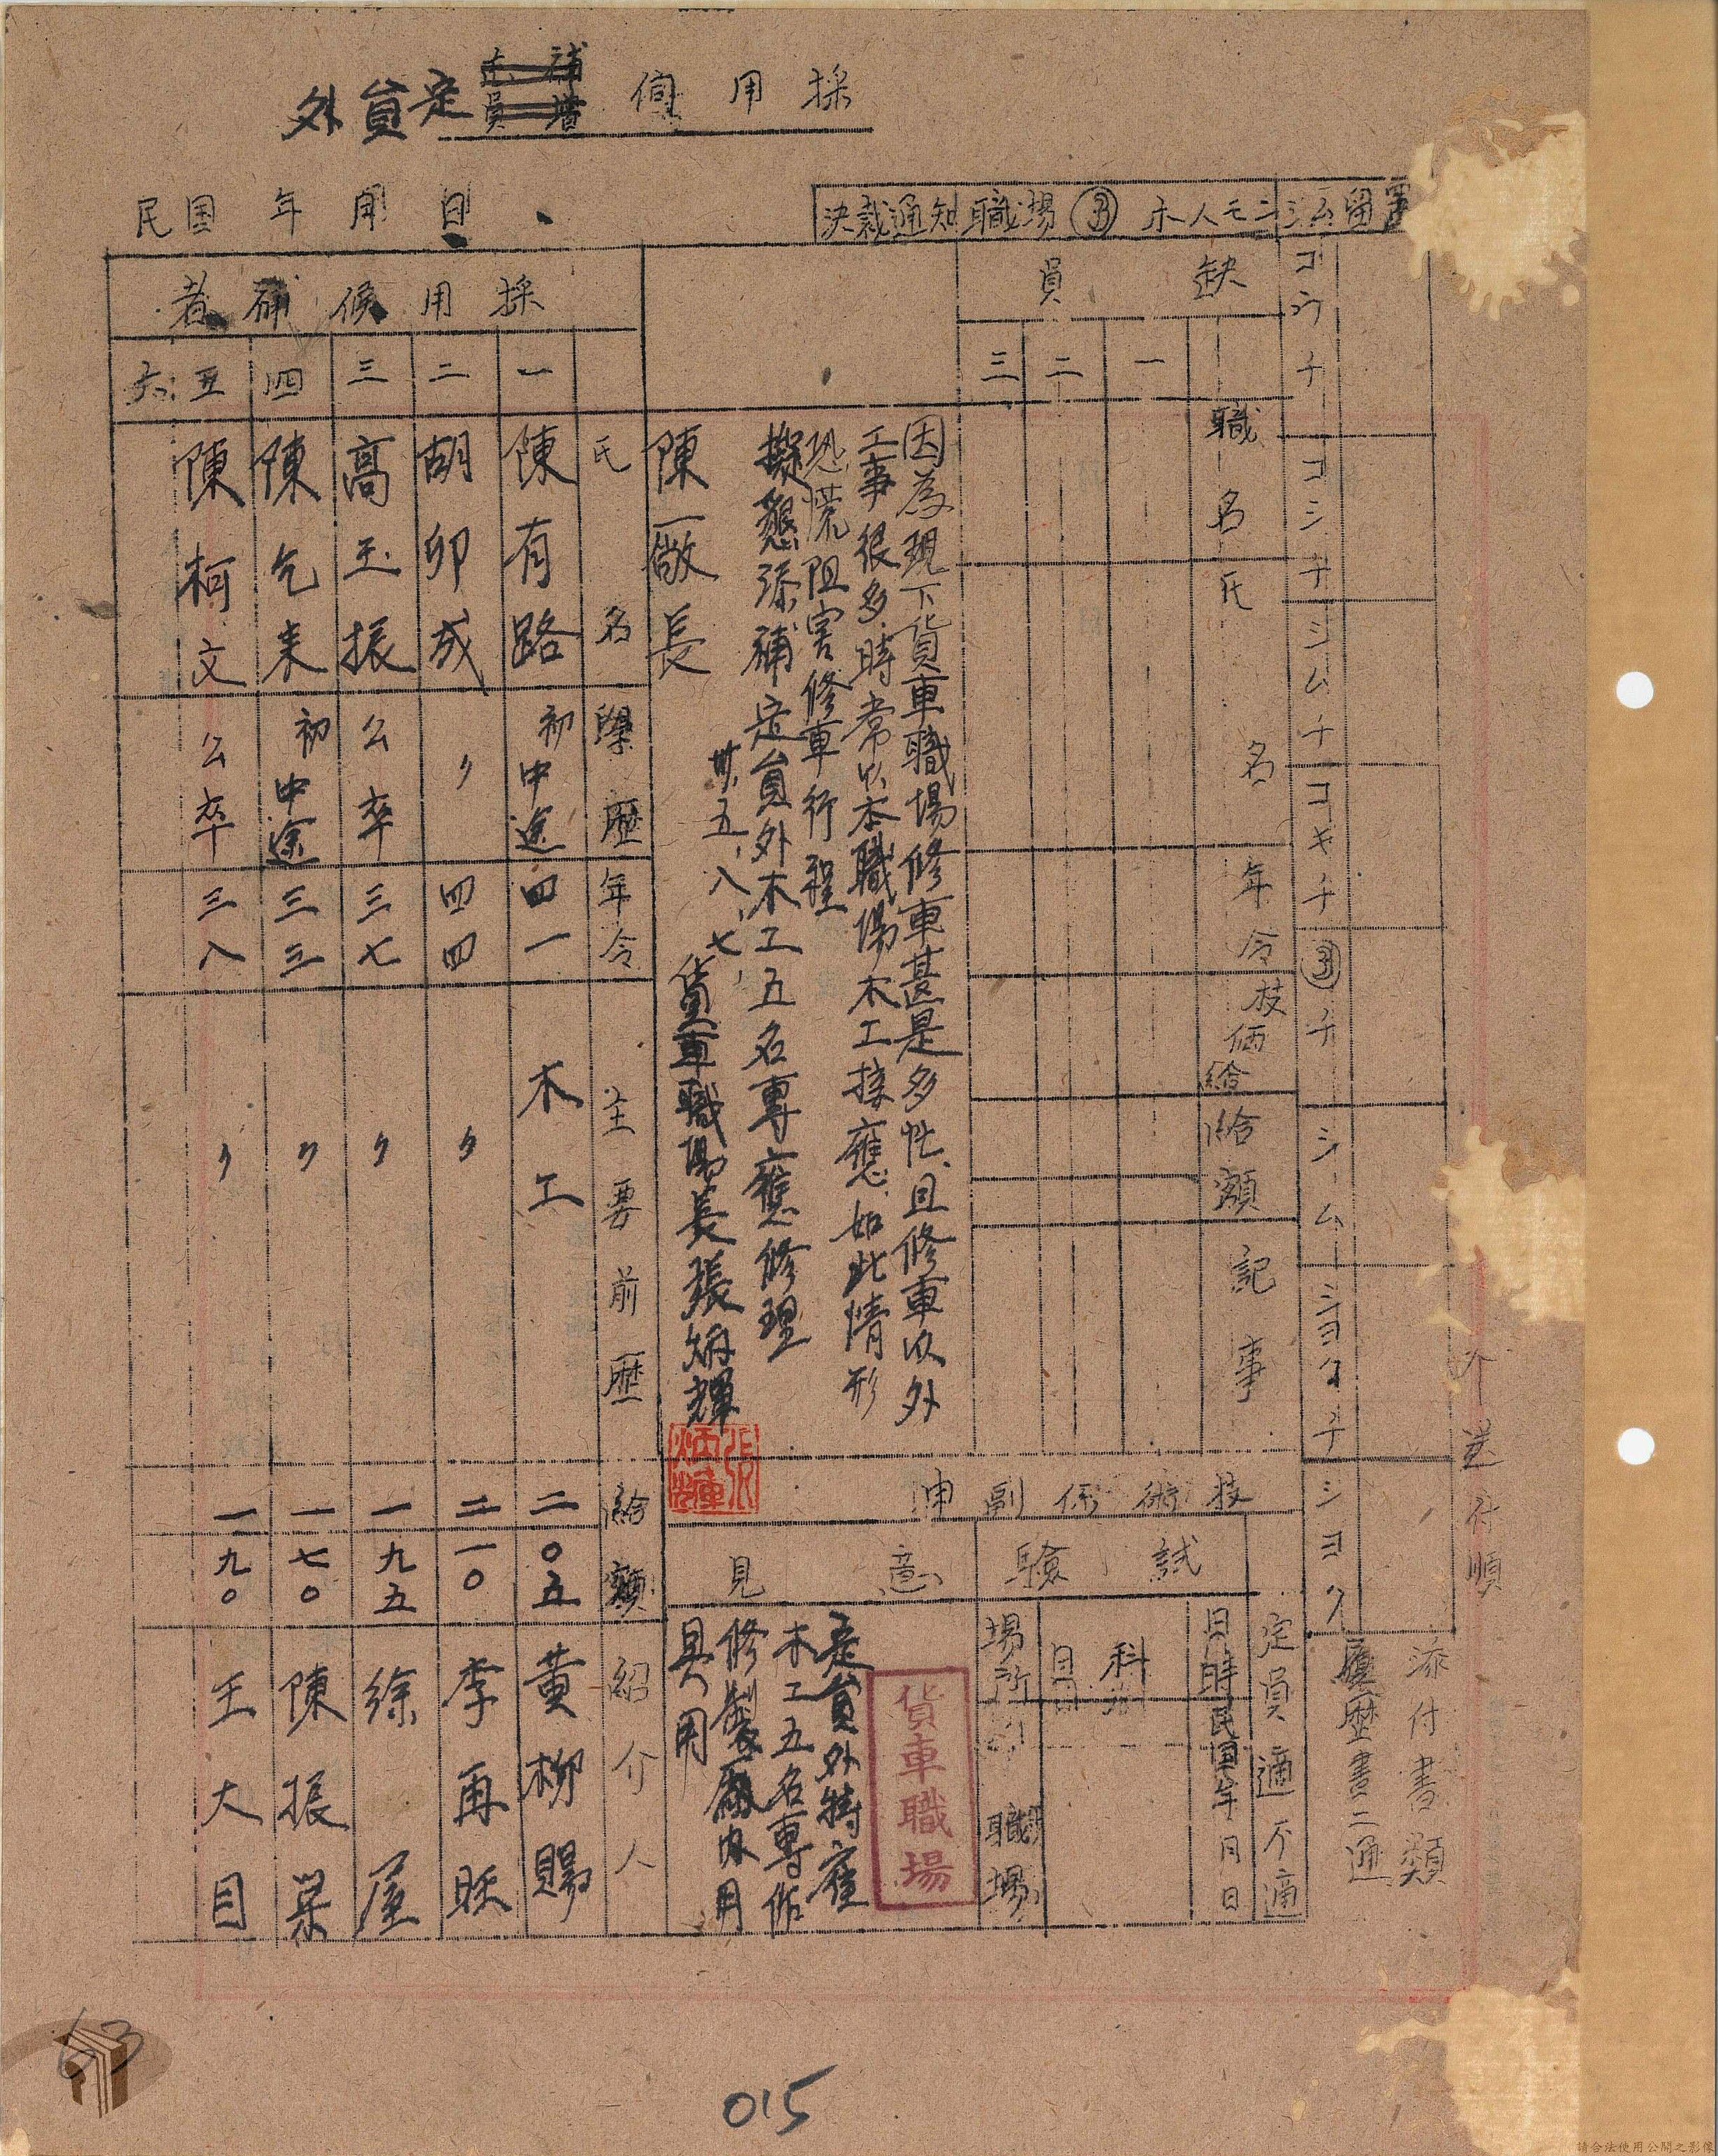 採用伺 補増 定員外
決裁通知 職場
民国 年 月 日
添付書類
履歴書二通
缺員
職名 氏名 年令 技倆給 給額 記事
一
二
三
技術係副申
試験
意見
定員 適 不適
日時 民国 年 月 日
科目
場所 職場
貨車職場
定員外特雇
木工五名專作
修製廠内用
具用
因為現下貨車職場修車甚是多忙、且修車以外
工事很多、時常以本職場木工接應、如此情形
恐慌阻害修車行程
擬懇添補定員外木工五名專應修理
卅五、八、七、
貨車職場長張炳輝
張炳輝
陳廠長
採用候補者
氏名 學歷 年令 主要前歷 給額 紹介人
一 陳有路 初中途 四一 木工 二〇五 黄柳賜
二 胡卯成 〃 四四 〃 二一〇 李再旺
三 高玉振 公卒 三七 〃 一九五 徐屋
四 陳乞来 初中途 三三 〃 一七〇 陳振榮
五 陳柯文 公卒 三八 〃 一九〇 王大目
六
63
015
請合法使用公開之影像